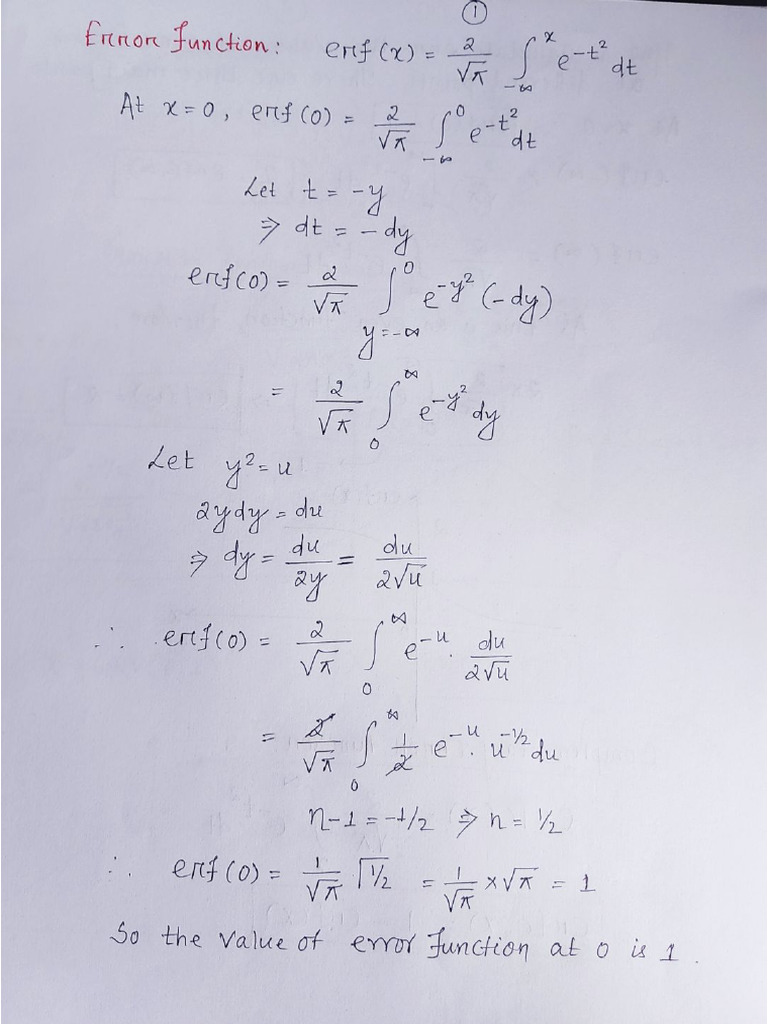 ①
Error Function: erf(x) = 2/√π ∫_{-∞}^{x} e^{-t²} dt
At x=0, erf(0) = 2/√π ∫_{-∞}^{0} e^{-t²} dt
Let t = -y
⇒ dt = -dy
erf(0) = 2/√π ∫_{y=-∞}^{0} e^{-y²} (-dy)
= 2/√π ∫_{0}^{∞} e^{-y²} dy
Let y² = u
2ydy = du
⇒ dy = du/2y = du/2√u
∴ erf(0) = 2/√π ∫_{0}^{∞} e^{-u} · du/2√u
= 2/√π ∫_{0}^{∞} 1/2 e^{-u} · u^{-1/2} du
n-1 = -1/2 ⇒ n = 1/2
∴ erf(0) = 1/√π Γ1/2 = 1/√π × √π = 1
So the value of error function at 0 is 1.